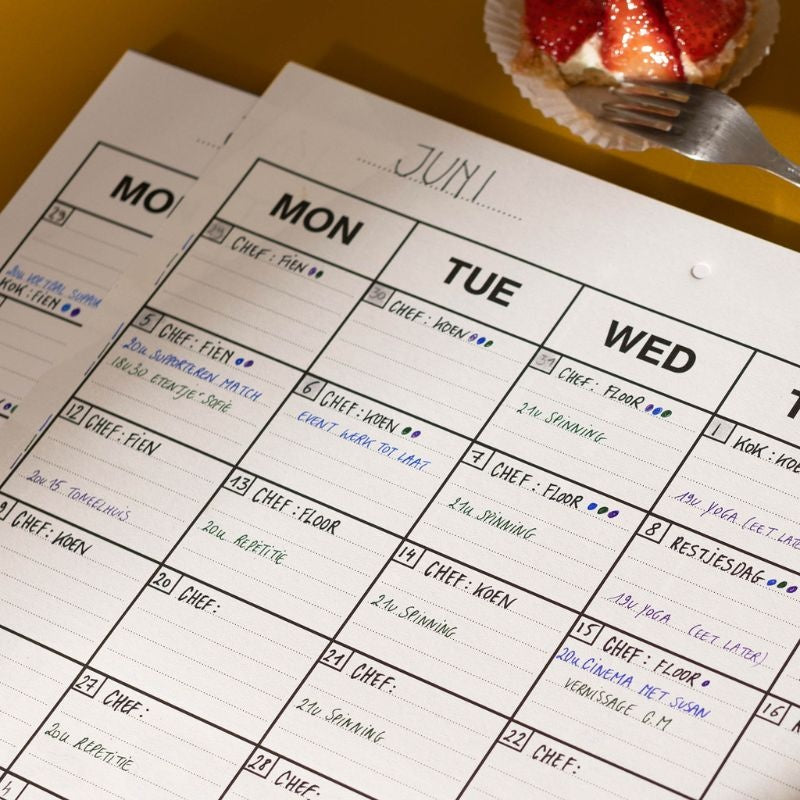 JUNI
MO
MON
TUE
WED
T
29
KOK: FIEN
29
CHEF: FIEN
30
CHEF: KOEN
31
CHEF: FLOOR
21u SPINNING
1
KOK: KOE
19u YOGA (EET LATE
5
CHEF: FIEN
20u SUPPORTEREN MATCH
18u30 ETENTJE SOFIE
6
CHEF: KOEN
EVENT WERK TOT LAAT
7
CHEF: FLOOR
21u SPINNING
8
RESTJESDAG
19u YOGA (EET LATER)
12
CHEF: FIEN
20u15 TONEELHUIS
13
CHEF: FLOOR
20u REPETITIE
14
CHEF: KOEN
21u SPINNING
15
CHEF: FLOOR
20u CINEMA MET SUSAN
VERNISSAGE G.M
16
CHEF: KOEN
20
CHEF:
21
CHEF:
21u SPINNING
22
CHEF:
27
CHEF:
20u REPETITIE
28
CHEF:
4